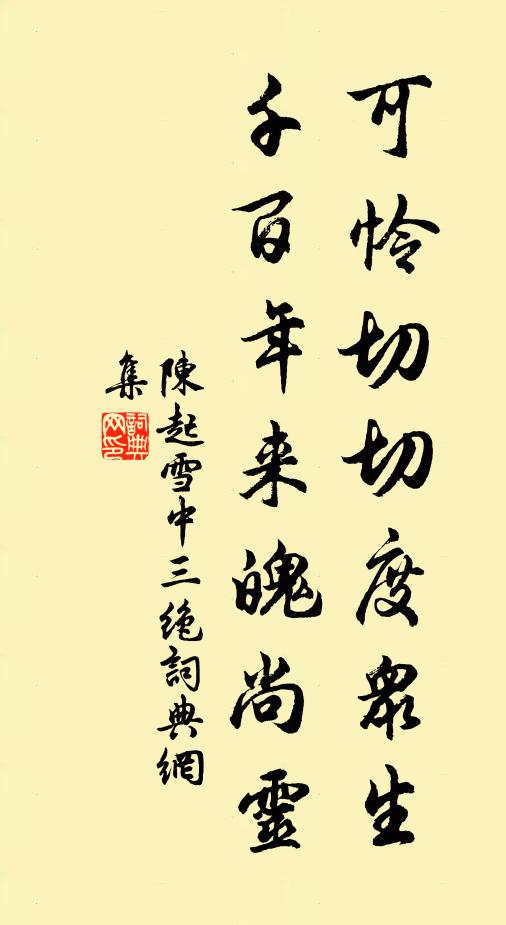 可怜切切度眾生
千百年来魄尚靈
陳起雪中三絶詞典網
集
詞典网印